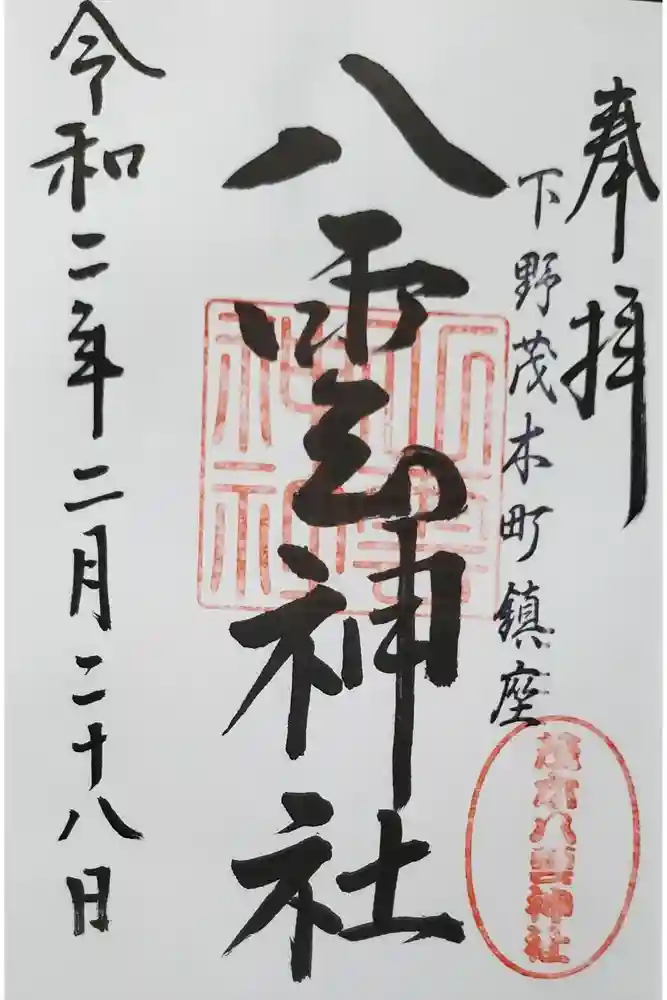 奉拝
下野茂木町鎮座
八雲神社
八雲神社
茂木八雲神社
令和二年二月二十八日